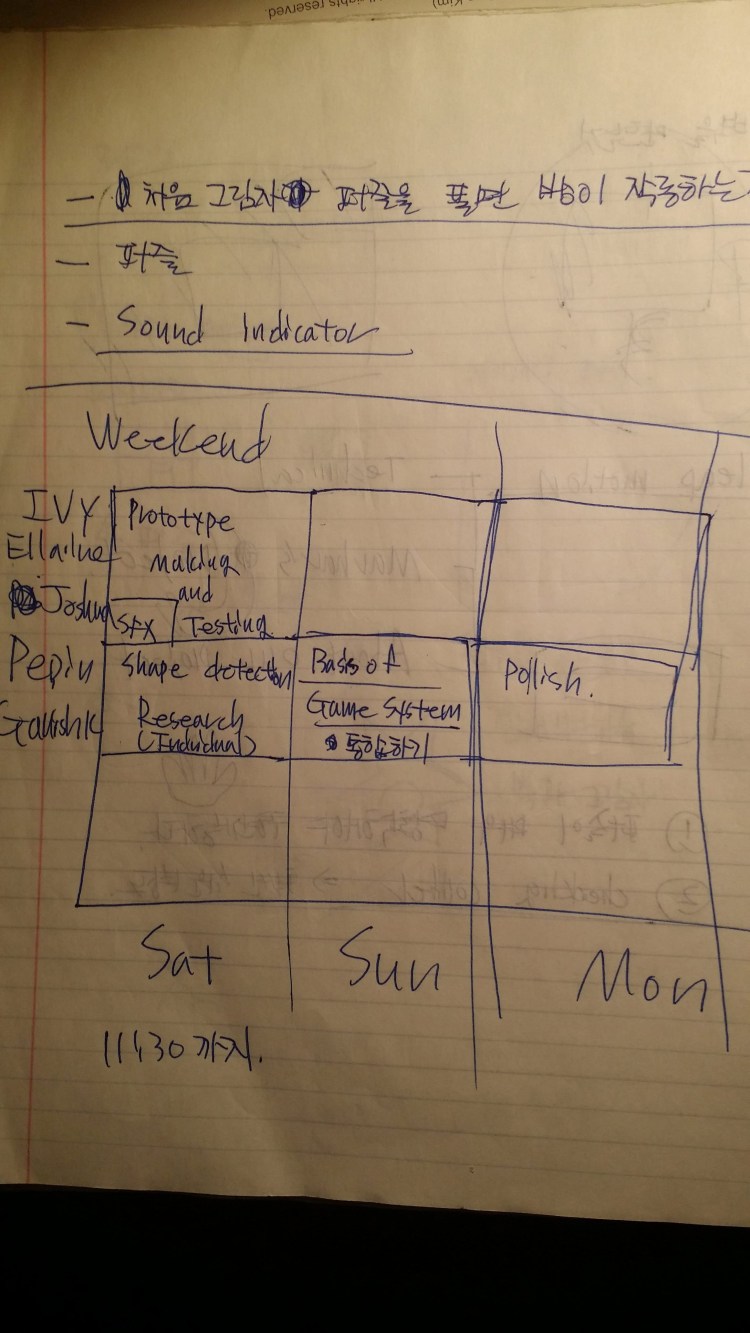 - 처음 그림자 퍼즐을 풀면 방이 작동하는
- 퍼즐
- Sound Indicator
Weekend
IVY
Prototype
making
and
Testing
Joshua
SFX
Pepin
Shape detection
Research
(Individual)
Basis of
Game System
통합하기
Pollish.
Sat
Sun
Mon
11:30 까지.